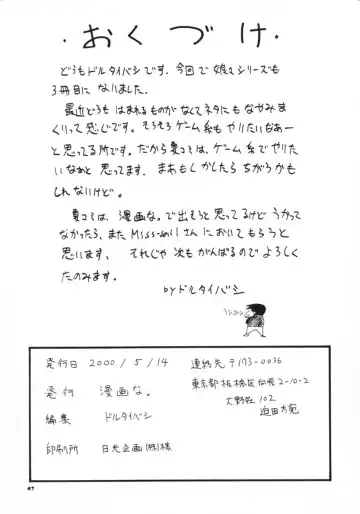 ・おくづけ・
どうもドルタイバシです。今回で娘々シリーズも
3冊目になりました。
最近どうも はまれるものがなくてネタにもなやみま
くりって感じです。そろそろゲーム系も やりたいなあー
と思ってる所です。だから夏コミは、ゲーム系でやりた
いなあと 思ってます。まあもしかしたら ちがうかも
しれないけど。
夏コミは、漫画な。で出そうと思ってるけど うかって
なかったら、また Missさんにおいてもらうと
思います。 それじゃ 次もがんばるので よろしく
たのみます。
by ドルタイバシ
発行日 2000/5/14
発行 漫画な。
編集 ドルタイバシ
印刷所 日光企画(株)様
連絡先 〒173-0036
東京都板橋区向原2-10-2
大野荘102
迫田方宛
47